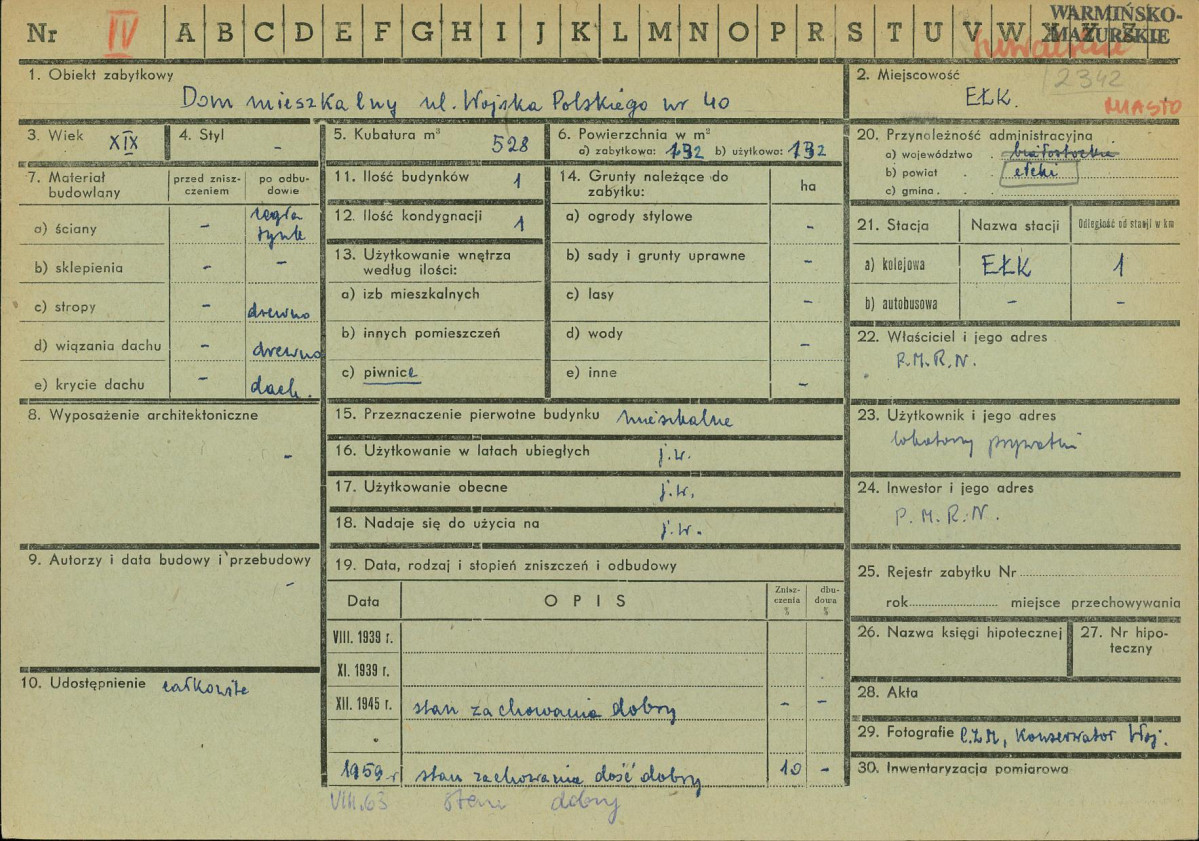 Nr IV A B C D E F G H I J K L M N O P R S T U V W X Y Z
WARMIŃSKO-
MAZURSKIE
suwalskie
1. Obiekt zabytkowy
Dom mieszkalny ul. Wojska Polskiego nr 40
2. Miejscowość
2342
EŁK.
MIASTO
3. Wiek XIX
4. Styl -
5. Kubatura m³ 528
6. Powierzchnia w m²
a) zabytkowa: 132 b) użytkowa: 132
7. Materiał budowlany
przed zniszczeniem
po odbudowie
a) ściany - cegła tynk
b) sklepienia - -
c) stropy - drewno
d) wiązania dachu - drewno
e) krycie dachu - dach.
8. Wyposażenie architektoniczne
-
9. Autorzy i data budowy i przebudowy
-
10. Udostępnienie całkowite
11. Ilość budynków 1
12. Ilość kondygnacji 1
13. Użytkowanie wnętrza
według ilości:
a) izb mieszkalnych
b) innych pomieszczeń
c) piwnice
14. Grunty należące do
zabytku:
ha
a) ogrody stylowe -
b) sady i grunty uprawne -
c) lasy -
d) wody -
e) inne -
15. Przeznaczenie pierwotne budynku mieszkalne
16. Użytkowanie w latach ubiegłych j.w.
17. Użytkowanie obecne j.w.
18. Nadaje się do użycia na j.w.
19. Data, rodzaj i stopień zniszczeń i odbudowy
Data
OPIS
Zniszczenia %
dbudowa %
VIII. 1939 r.
XI. 1939 r.
XII. 1945 r. stan zachowania dobry - -
1959 r stan zachowania dość dobry 10 -
VIII.63 stan dobry
20. Przynależność administracyjna
a) województwo białostockie
b) powiat ełcki
c) gmina
21. Stacja
Nazwa stacji
Odległość od stacji w km
a) kolejowa EŁK 1
b) autobusowa - -
22. Właściciel i jego adres
P.M.R.N.
23. Użytkownik i jego adres
lokatorzy prywatni
24. Inwestor i jego adres
P.M.R.N.
25. Rejestr zabytku Nr
rok miejsce przechowywania
26. Nazwa księgi hipotecznej
27. Nr hipoteczny
28. Akta
29. Fotografie Konserwator Woj.
30. Inwentaryzacja pomiarowa